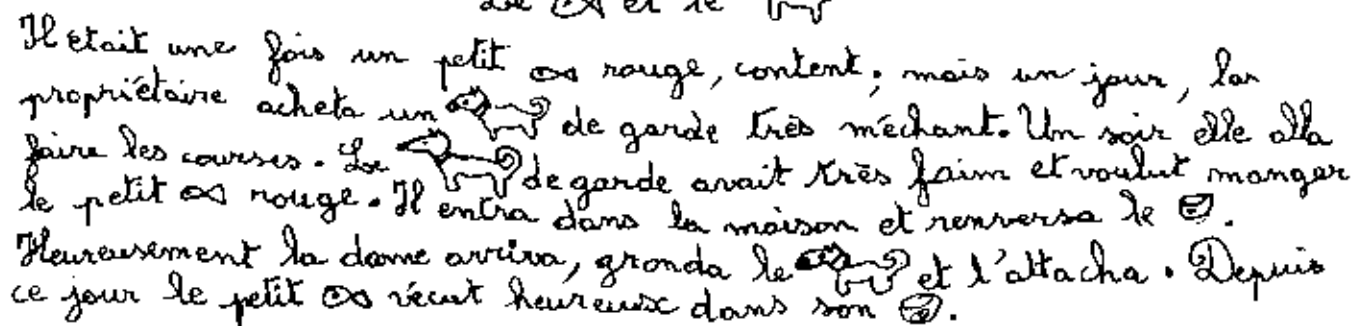 Le et le
Il était une fois un petit rouge, content, mais un jour, la
propriétaire acheta un de garde très méchant. Un soir elle alla
faire les courses. Le de garde avait très faim et voulut manger
le petit rouge. Il entra dans la maison et renversa le .
Heureusement la dame arriva, gronda le et l'attacha. Depuis
ce jour le petit vécut heureux dans son .